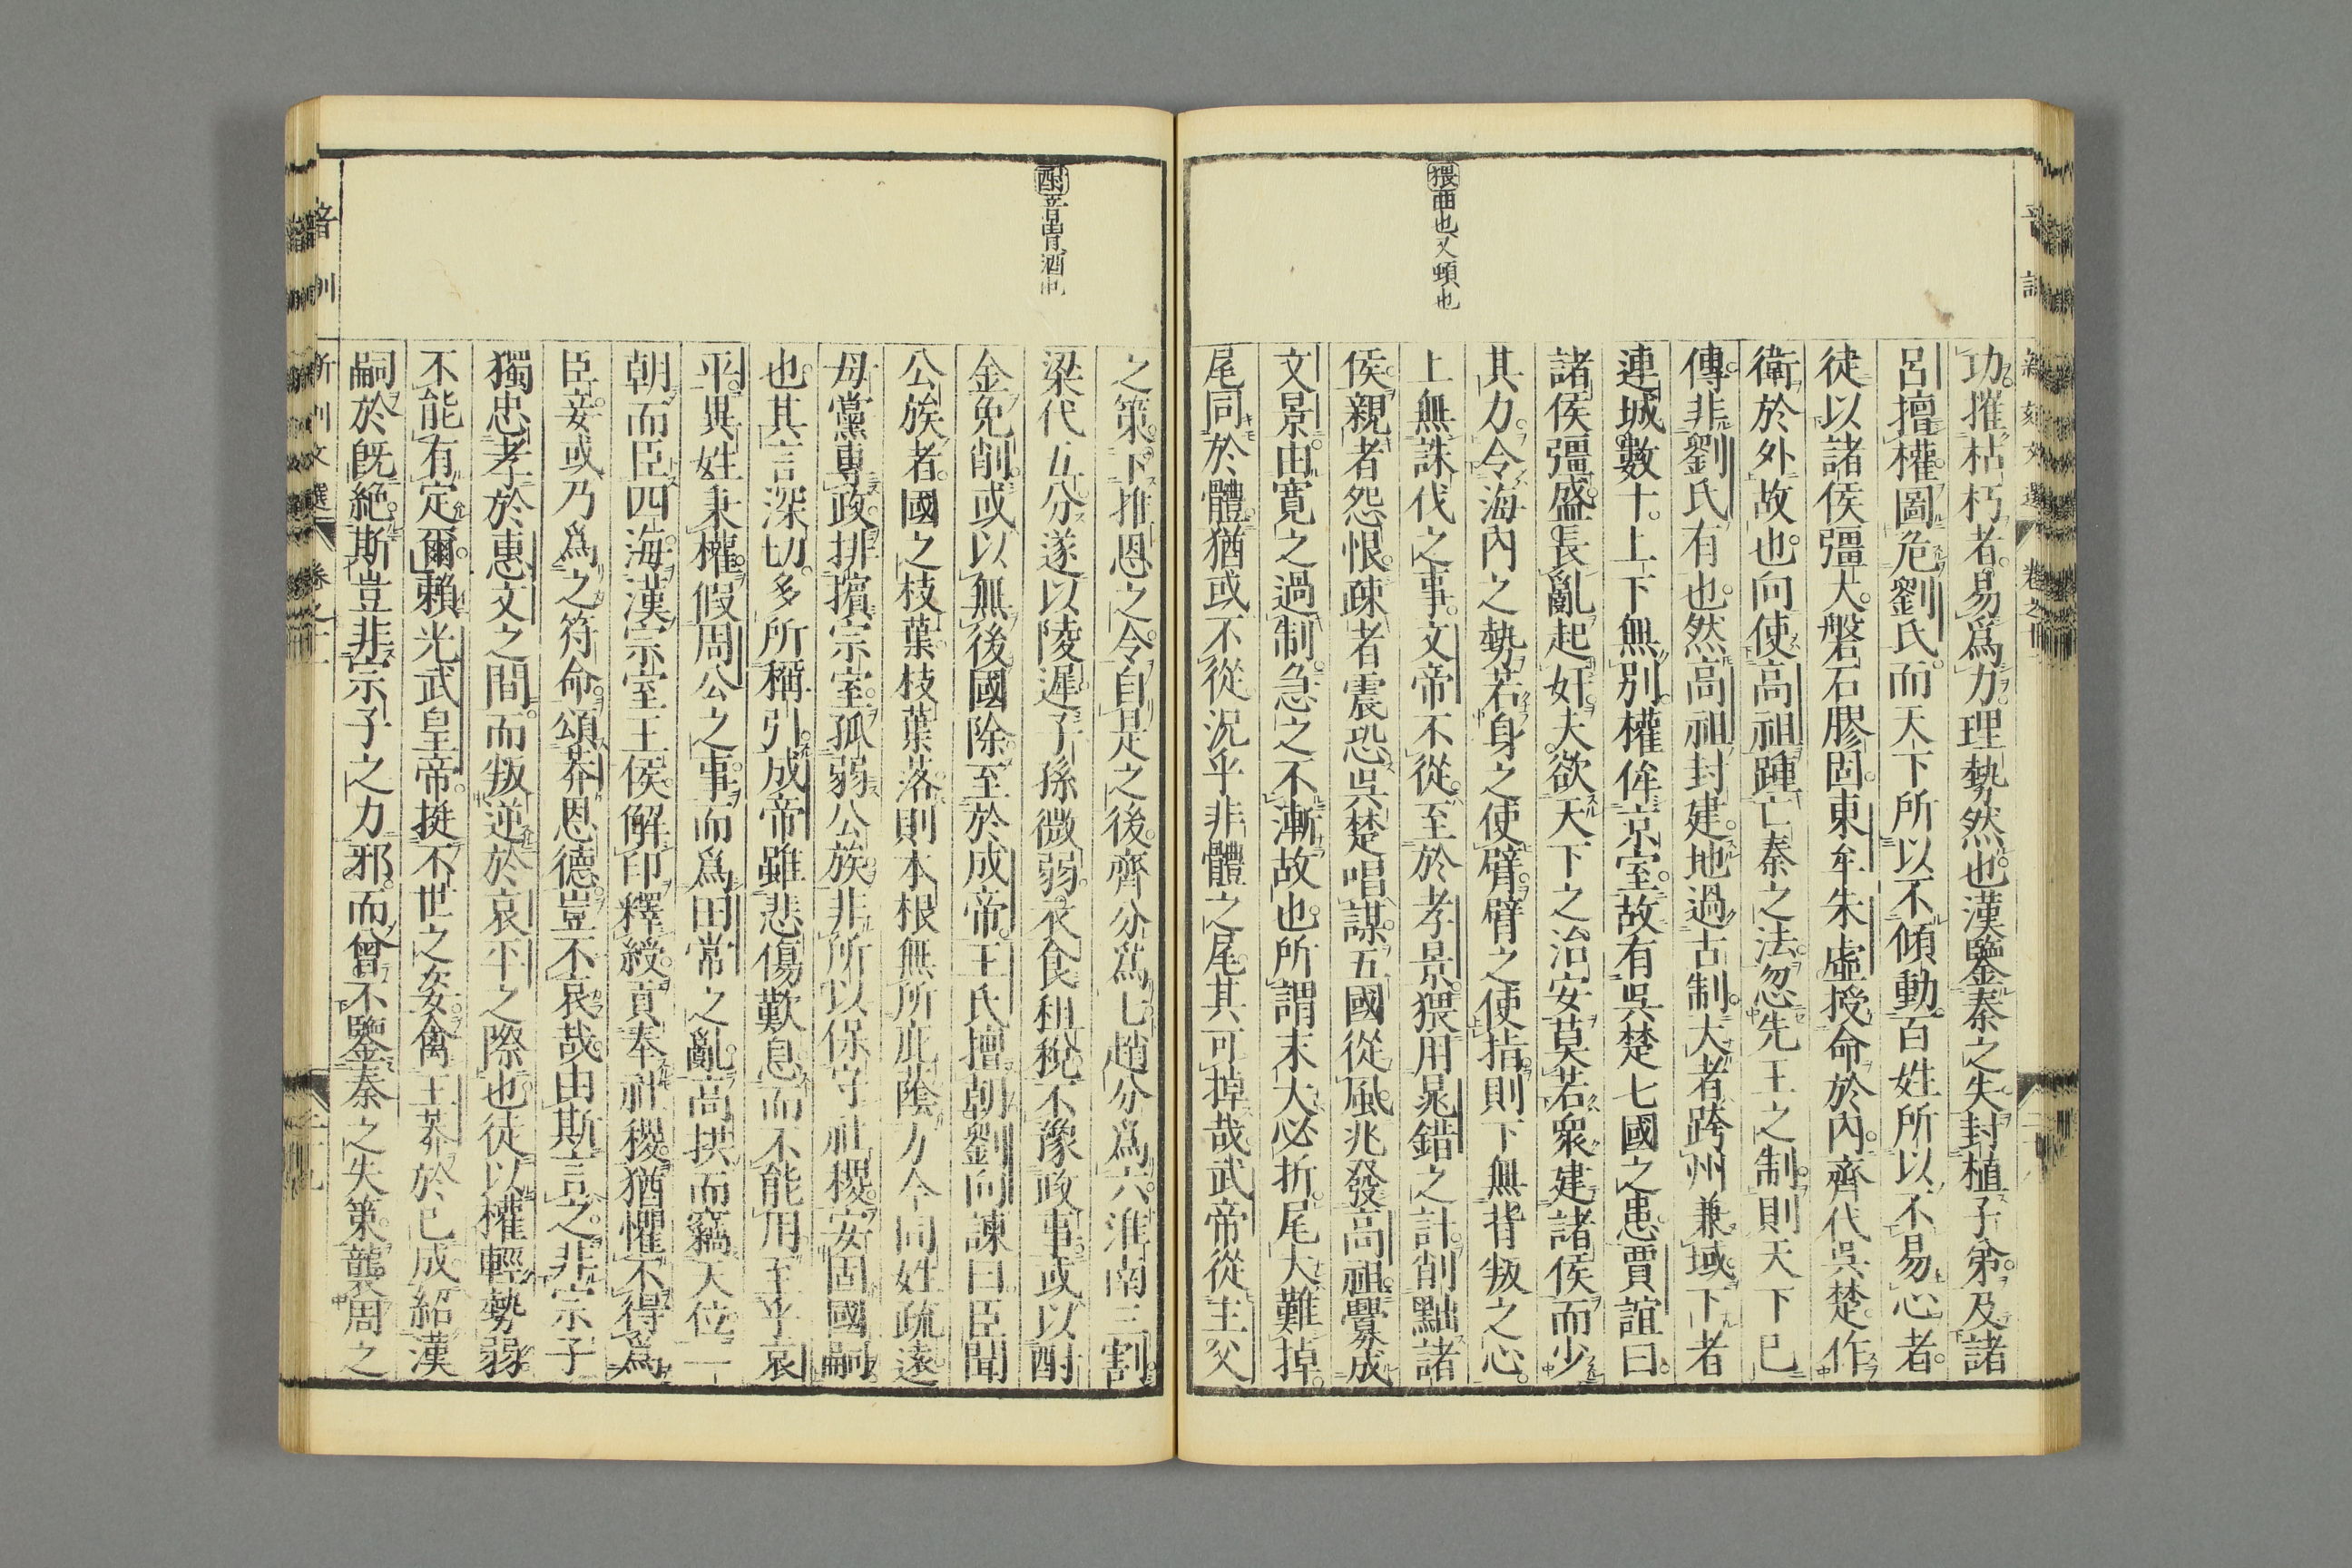 猥曲也又頓也
功摧枯朽者易爲力理勢然也漢鑒秦之失封植子弟及諸
呂擅權圖危劉氏而天下所以不傾動百姓所以不易心者
徒以諸侯彊大磐石膠固東牟朱虛授命於內齊代吳楚作
衛於外故也向使高祖踵亡秦之法忽先王之制則天下已
傳非劉氏有也然高祖封建地過古制大者跨州兼域下者
連城數十上下無別權侔京室故有吳楚七國之患賈誼曰
諸侯彊盛長亂起奸夫欲天下之治安莫若衆建諸侯而少
其力令海內之勢若身之使臂臂之使指則下無背叛之心
上無誅伐之事文帝不從至於孝景猥用晁錯之計削黜諸
侯親者怨恨疎者震恐吳楚唱謀五國從風兆發高祖釁成
文景由寬之過制急之不漸故也所謂末大必折尾大難掉
尾同於體猶或不從況乎非體之尾其可掉哉武帝從主父
酎音冑酒也
之策下推恩之令自是之後齊分爲七趙分爲六淮南三割
梁代五分遂以陵遲子孫微弱衣食租稅不豫政事或以酎
金免削或以無後國除至於成帝王氏擅朝劉向諫曰臣聞
公族者國之枝葉枝葉落則本根無所庇蔭方今同姓疏遠
母黨專政排擯宗室孤弱公族非所以保守社稷安固國嗣
也其言深切多所稱引成帝雖悲傷歎息而不能用至乎哀
平異姓秉權假周公之事而爲田常之亂高拱而竊天位一
朝而臣四海漢宗室王侯解印釋綬貢奉社稷猶懼不得爲
臣妾或乃爲之符命頌莽恩德豈不哀哉由斯言之非宗子
獨忠孝於惠文之間而叛逆於哀平之際也徒以權輕勢弱
不能有定爾賴光武皇帝挺不世之姿禽王莽於已成紹漢
嗣於既絕斯豈非宗子之力邪而曾不鑒秦之失策襲周之
音訓 新刻文選 卷之